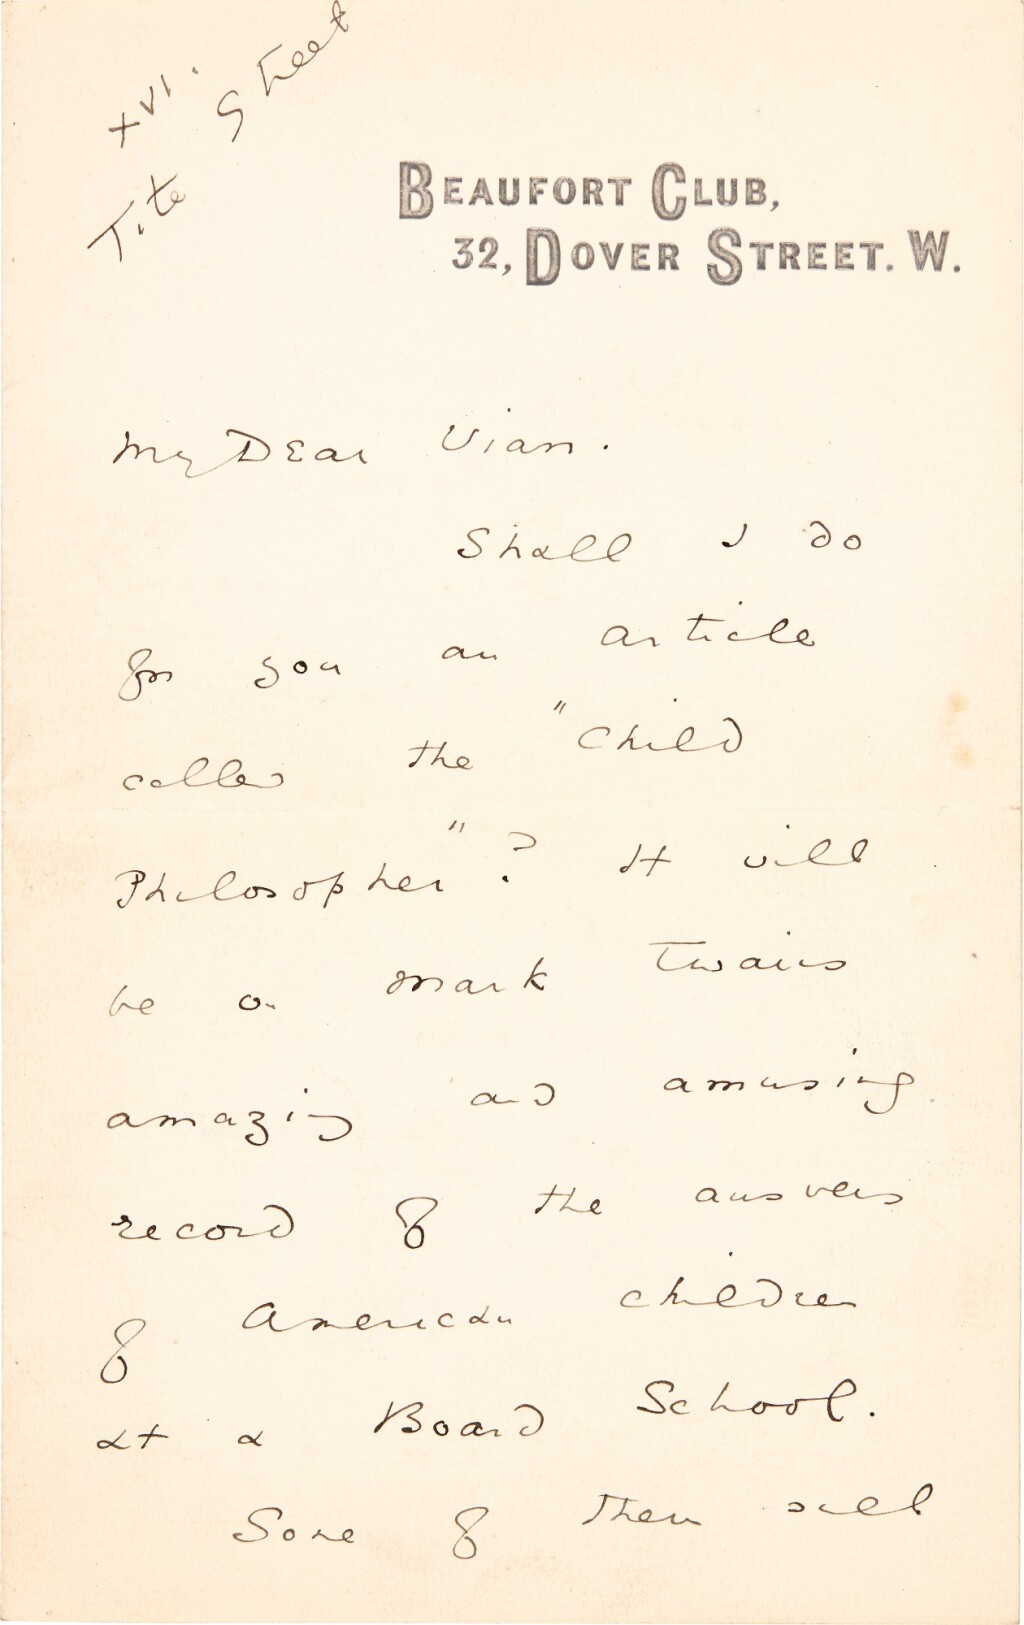 XVI.
Tite Street
BEAUFORT CLUB,
32, DOVER STREET. W.
My Dear Vian.
Shall I do
for you an article
called the "Child
Philosopher"? It will
be on Mark Twain's
amazing and amusing
record of the answers
of American children
at a Board School.
Some of them